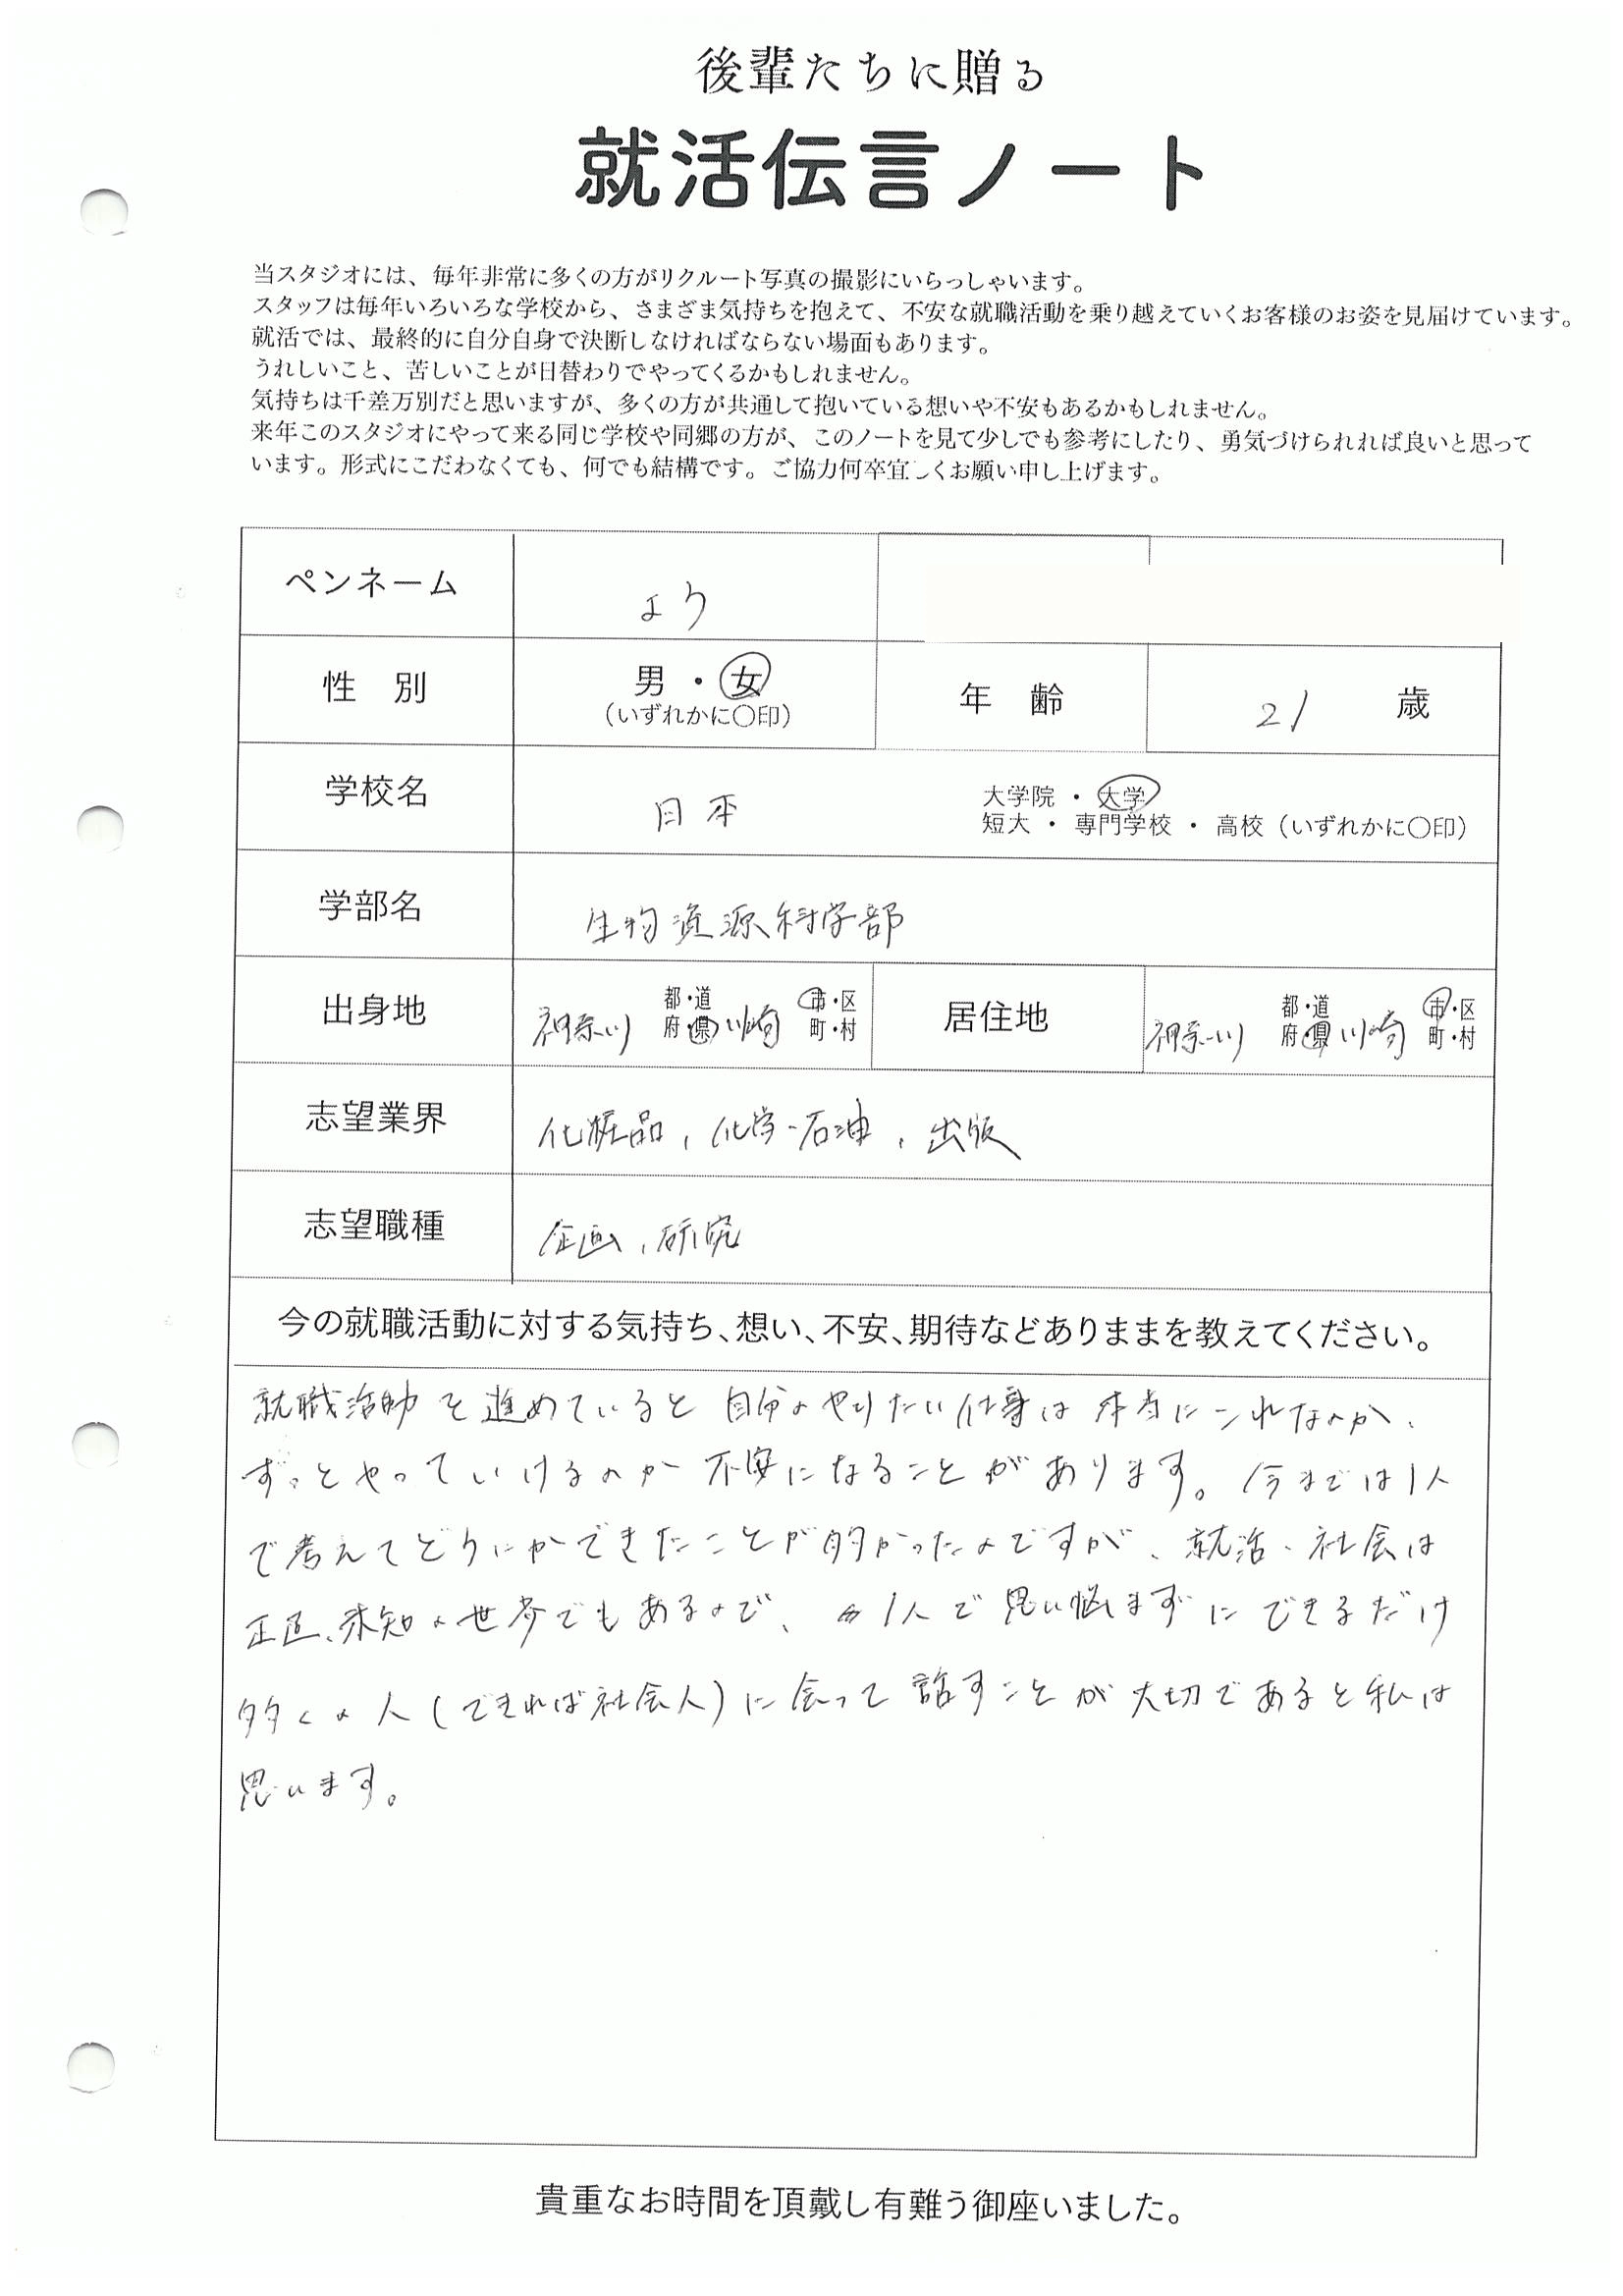 後輩たちに贈る
就活伝言ノート
当スタジオには、毎年非常に多くの方がリクルート写真の撮影にいらっしゃいます。
スタッフは毎年いろいろな学校から、さまざま気持ちを抱えて、不安な就職活動を乗り越えていくお客様のお姿を見届けています。
就活では、最終的に自分自身で決断しなければならない場面もあります。
うれしいこと、苦しいことが日替わりでやってくるかもしれません。
気持ちは千差万別だと思いますが、多くの方が共通して抱いている想いや不安もあるかもしれません。
来年このスタジオにやって来る同じ学校や同郷の方が、このノートを見て少しでも参考にしたり、勇気づけられれば良いと思って
います。形式にこだわなくても、何でも結構です。ご協力何卒宜しくお願い申し上げます。
ペンネーム より
性 別 男・女 年 齢 21 歳
(いずれかに〇印)
学校名 日本 大学院・大学
短大・専門学校・高校(いずれかに〇印)
学部名 生物資源科学部
出身地 神奈川 都・道府・県 川崎 市・区町・村 居住地 神奈川 都・道府・県 川崎 市・区町・村
志望業界 化粧品, 化学・石油, 出版
志望職種 企画, 研究
今の就職活動に対する気持ち、想い、不安、期待などありままを教えてください。
就職活動を進めていると自分のやりたい仕事は本当にこれなのか、
ずっとやっていけるのか不安になることがあります。今までは1人
で考えてどうにかできたことが多かったのですが、就活・社会は
正直、未知の世界でもあるので、1人で思い悩まずにできるだけ
多くの人(できれば社会人)に会って話すことが大切であると私は
思います。
貴重なお時間を頂戴し有難う御座いました。